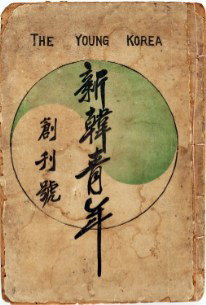 THE YOUNG KOREA
新韓青年
創刊號